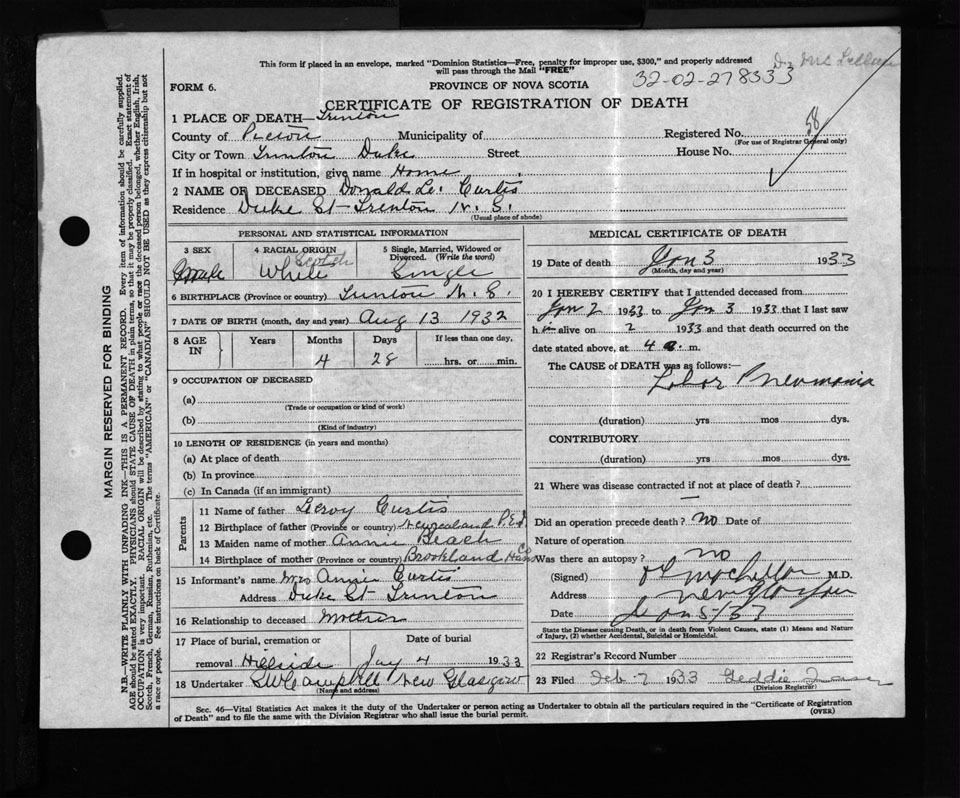 This form if placed in an envelope, marked "Dominion Statistics—Free, penalty for improper use, $300," and properly addressed
will pass through the Mail "FREE"
Dr Mc Lellan
FORM 6.
PROVINCE OF NOVA SCOTIA
32-02-278333
CERTIFICATE OF REGISTRATION OF DEATH
1 PLACE OF DEATH—Trenton
58
County of Pictou Municipality of Registered No.
(For use of Registrar General only)
City or Town Trenton Duke Street House No.
If in hospital or institution, give name Home
2 NAME OF DECEASED Donald Le. Curtis
Residence Duke St Trenton N. S.
(Usual place of abode)
PERSONAL AND STATISTICAL INFORMATION
3 SEX 4 RACIAL ORIGIN 5 Single, Married, Widowed or Divorced. (Write the word)
male White Scotch Single
6 BIRTHPLACE (Province or country) Trenton N. S.
7 DATE OF BIRTH (month, day and year) Aug 13 1932
8 AGE IN Years Months Days If less than one day,
4 28 hrs. or min.
9 OCCUPATION OF DECEASED
(a)
(Trade or occupation or kind of work)
(b)
(Kind of industry)
10 LENGTH OF RESIDENCE (in years and months)
(a) At place of death
(b) In province
(c) In Canada (if an immigrant)
Parents
11 Name of father Leroy Curtis
12 Birthplace of father (Province or country) Newzealand P.E.I.
13 Maiden name of mother Annie Beach
14 Birthplace of mother (Province or country) Brookland Hans Co
15 Informant's name Mrs Annie Curtis
Address Duke St Trenton
16 Relationship to deceased Mother
17 Place of burial, cremation or Date of burial
removal Hillside Jay 4 1933
18 Undertaker S W Campbell New Glasgow
(Name and address)
MEDICAL CERTIFICATE OF DEATH
19 Date of death Jan 3 1933
(Month, day and year)
20 I HEREBY CERTIFY that I attended deceased from
Jan 2 1933 to Jan 3 1933 that I last saw
h im alive on 2 1933 and that death occurred on
date stated above, at 4 a. m.
The CAUSE of DEATH was as follows:—
Lobar Pneumonia
(duration) yrs mos dys.
CONTRIBUTORY
(duration) yrs mos dys.
21 Where was disease contracted if not at place of death?
—
Did an operation precede death? no Date of
Nature of operation
Was there an autopsy? no
(Signed) M.D.
Address New Glasgow
Date Jan 5/33
State the Disease causing Death, or in death from Violent Causes, state (1) Means and Nature
of Injury, (2) whether Accidental, Suicidal or Homicidal.
22 Registrar's Record Number
23 Filed Feb-7 1933 Geddie
(Division Registrar)
Sec. 46—Vital Statistics Act makes it the duty of the Undertaker or person acting as Undertaker to obtain all the particulars required in the "Certificate of Registration
of Death" and to file the same with the Division Registrar who shall issue the burial permit.
(OVER)
MARGIN RESERVED FOR BINDING
N.B.—WRITE PLAINLY WITH UNFADING INK—THIS IS A PERMANENT RECORD. Every item of information should be carefully supplied.
AGE should be stated EXACTLY. PHYSICIANS should STATE CAUSE OF DEATH in plain terms, so that it may be properly classified. Exact statement of
OCCUPATION is very important. RACIAL ORIGIN will be described by stating to what people or race the deceased person belonged, whether English, Irish,
Scotch, French, German, Russian, Ruthenian, etc. The terms "AMERICAN" or "CANADIAN" SHOULD NOT BE USED as they express citizenship but not
a race or people. See instructions on back of Certificate.